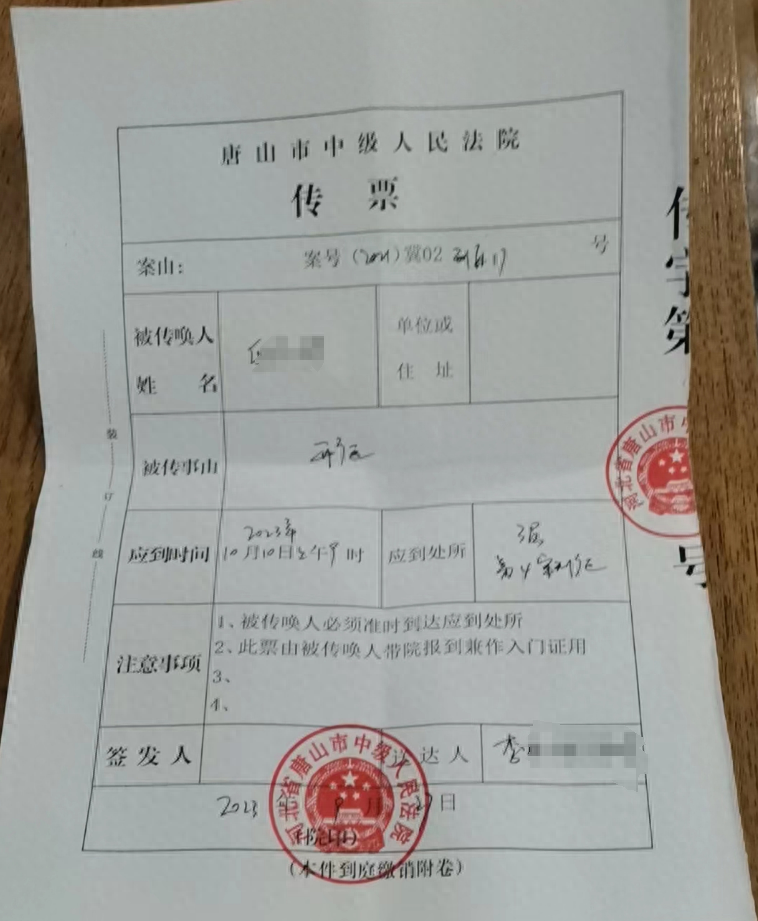 唐山市中级人民法院
传票
案由: 案号 (2021) 冀02 号
被传唤人
姓名
单位或
住址
被传事由 开庭
应到时间 2023年
10月10日上午9时
应到处所 3层
第4审判庭
注意事项
1、被传唤人必须准时到达应到处所
2、此票由被传唤人带院报到兼作入门证用
3、
4、
签发人
送达人 李
2023年9月27日
(院印)
(本件到庭缴销附卷)
装
订
线
传
字
第
号
河北省唐山市中级人民法院
河北省唐山市中